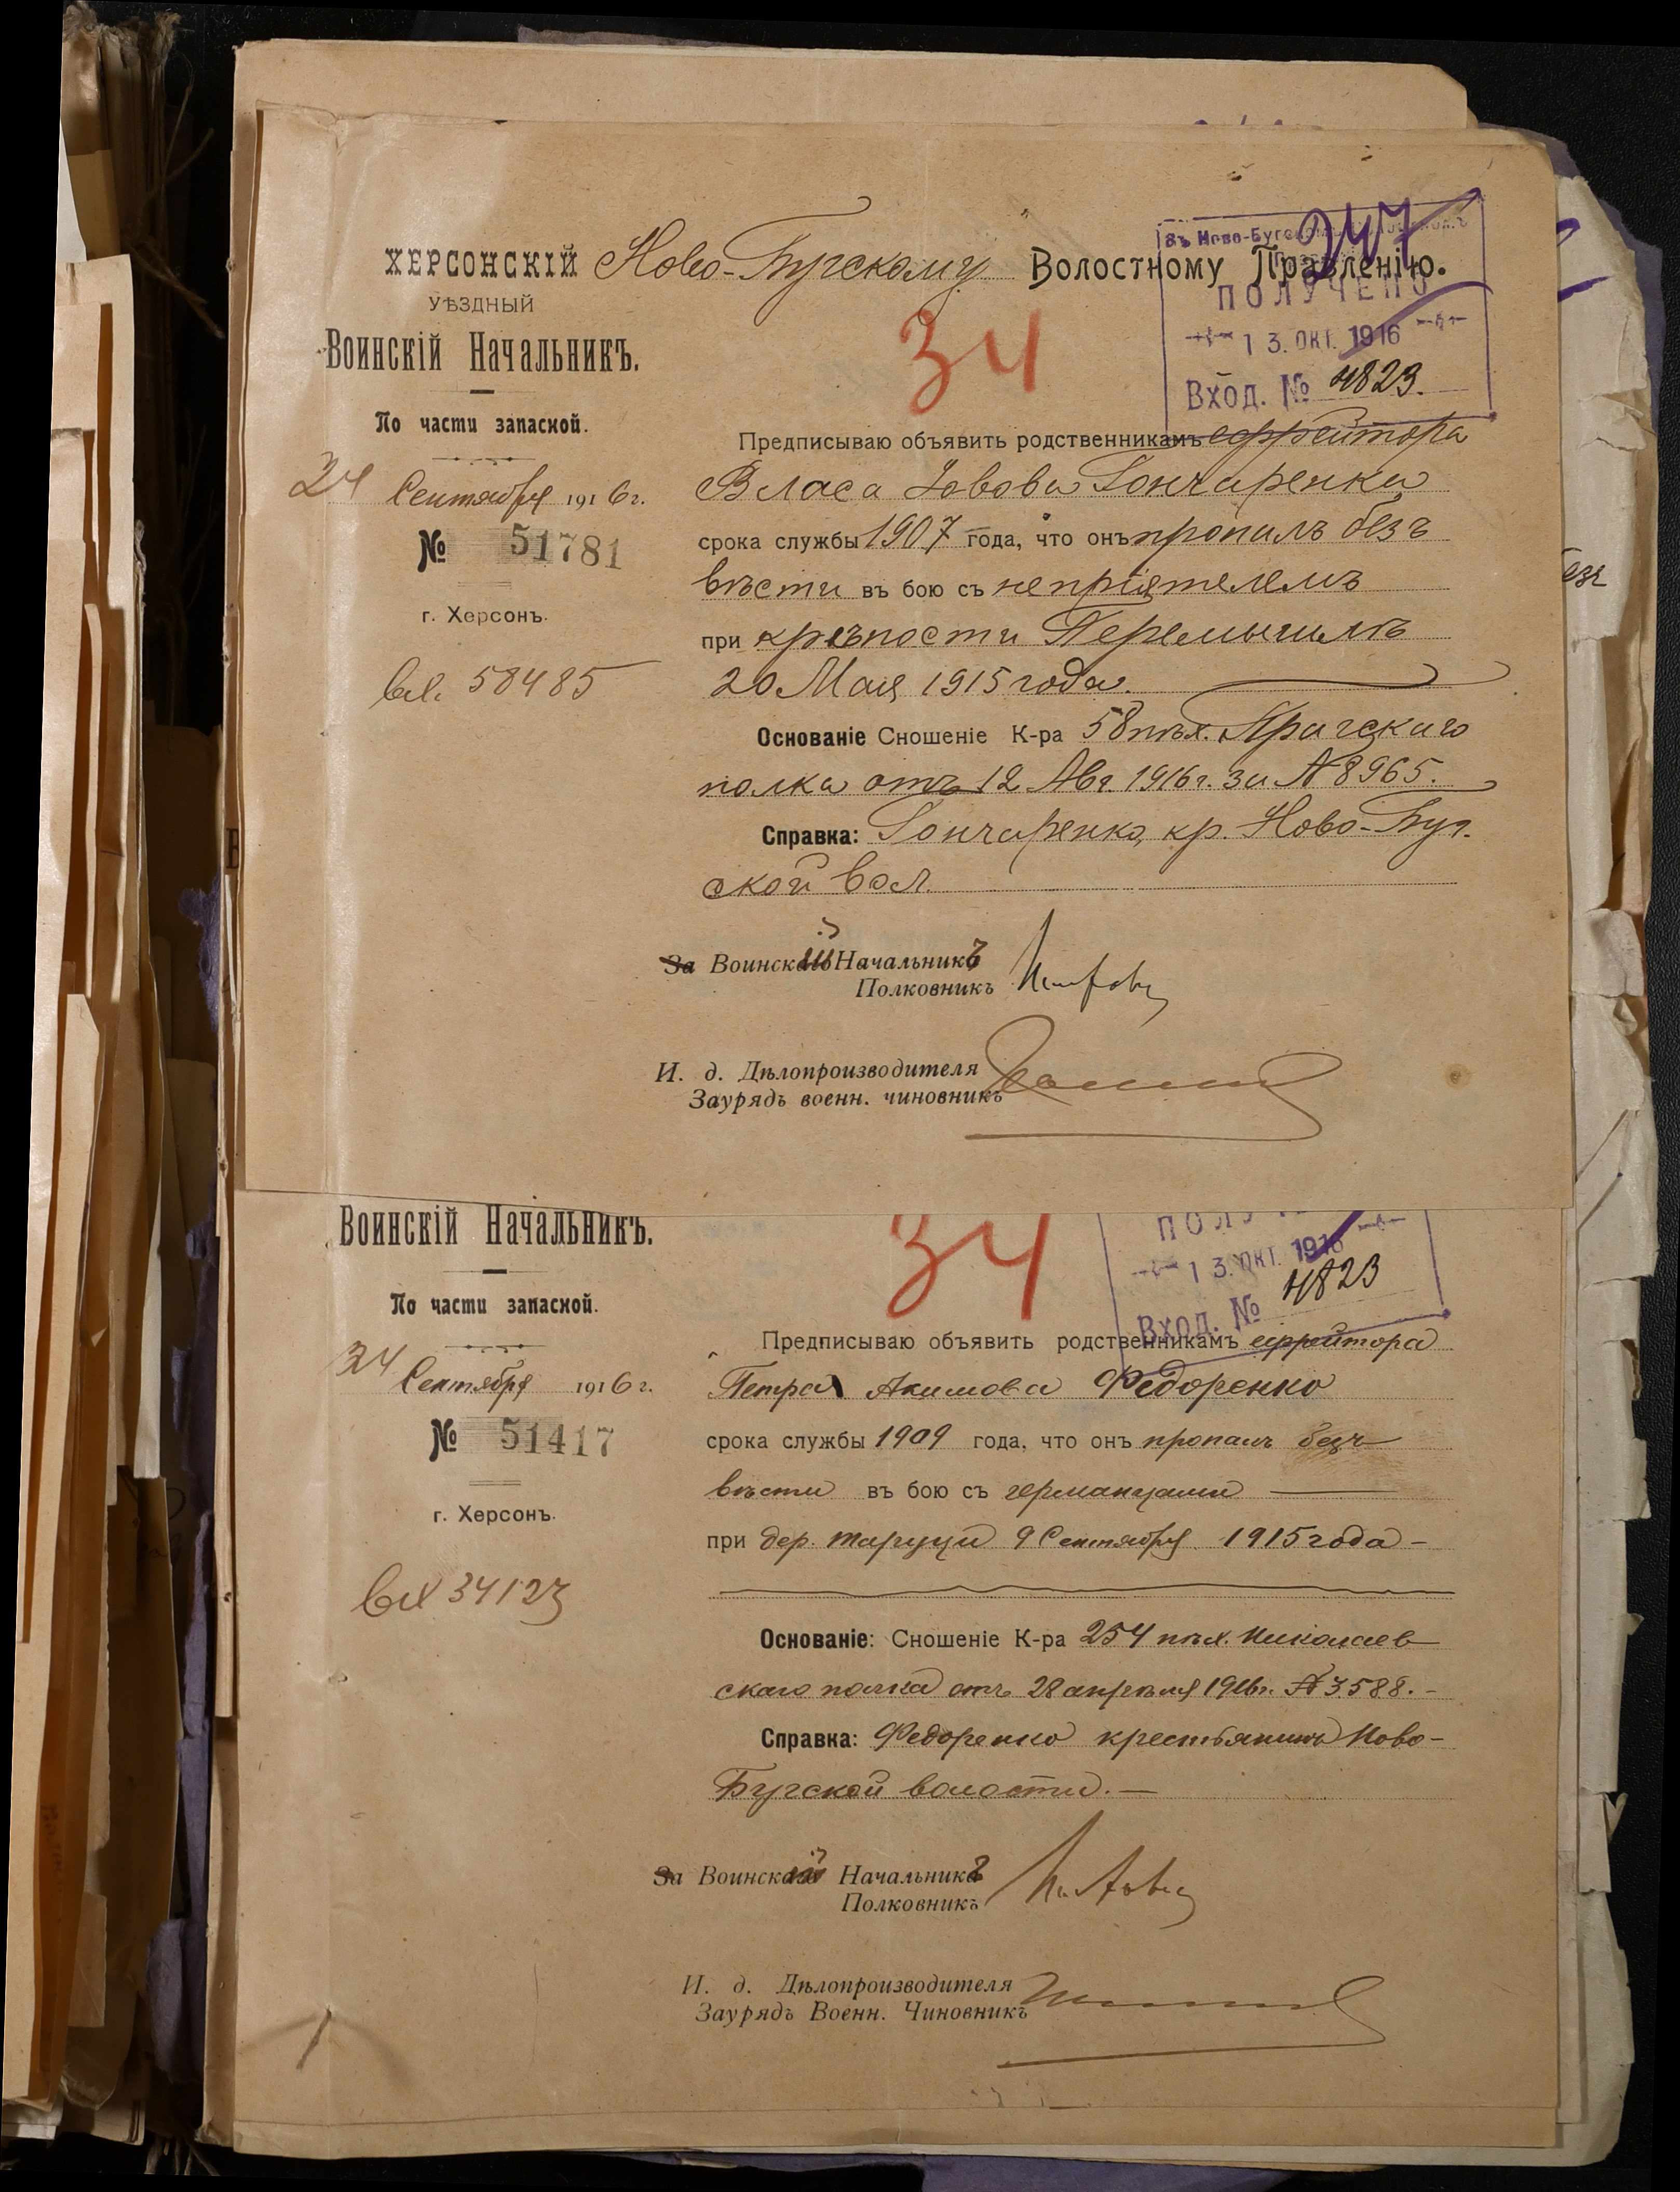 247
Въ Ново-Буг
ХЕРСОНСКІЙ Ново-Бугскому Волостному Правленію.
УѢЗДНЫЙ
ПОЛУЧЕНО
Воинскій Начальникъ.
34
13. ОКТ. 1916
Вход. № 4823.
По части запасной.
Предписываю объявить родственникамъ ефрейтора
24 Сентября 1916 г.
Власа Іовова Гончаренка
№ 51781
срока службы 1907 года, что онъ пропалъ безъ
вѣсти въ бою съ непріятелемъ
г. Херсонъ.
при крѣпости Перемышлѣ
вх. 58485
20 Мая 1915 года.
Основаніе Сношеніе К-ра 58 пѣх. Прагскаго
полка отъ 12 Авг. 1916 г. за № 8965.
Справка: Гончаренко, кр. Ново-Буг.
ской вол.
За Воинскій Начальникъ
Полковникъ
И. д. Дѣлопроизводителя
Заурядъ военн. чиновникъ
Воинскій Начальникъ.
34
13. ОКТ. 1916
4823
Вход. №
По части запасной.
Предписываю объявить родственникамъ ефрейтора
24 Сентября 1916 г.
Петра Акимова Федоренко
№ 51417
срока службы 1909 года, что онъ пропалъ безъ
вѣсти въ бою съ германцами
г. Херсонъ.
при дер. 9 Сентября 1915 года -
вх 34123
Основаніе: Сношеніе К-ра 254 пѣх. Николаев
скаго полка отъ 28 апрѣля 1916 г. № 3588. -
Справка: Федоренко крестьянинъ Ново-
Бугской волости. —
За Воинскій Начальникъ
Полковникъ
И. д. Дѣлопроизводителя
Заурядъ Военн. Чиновникъ